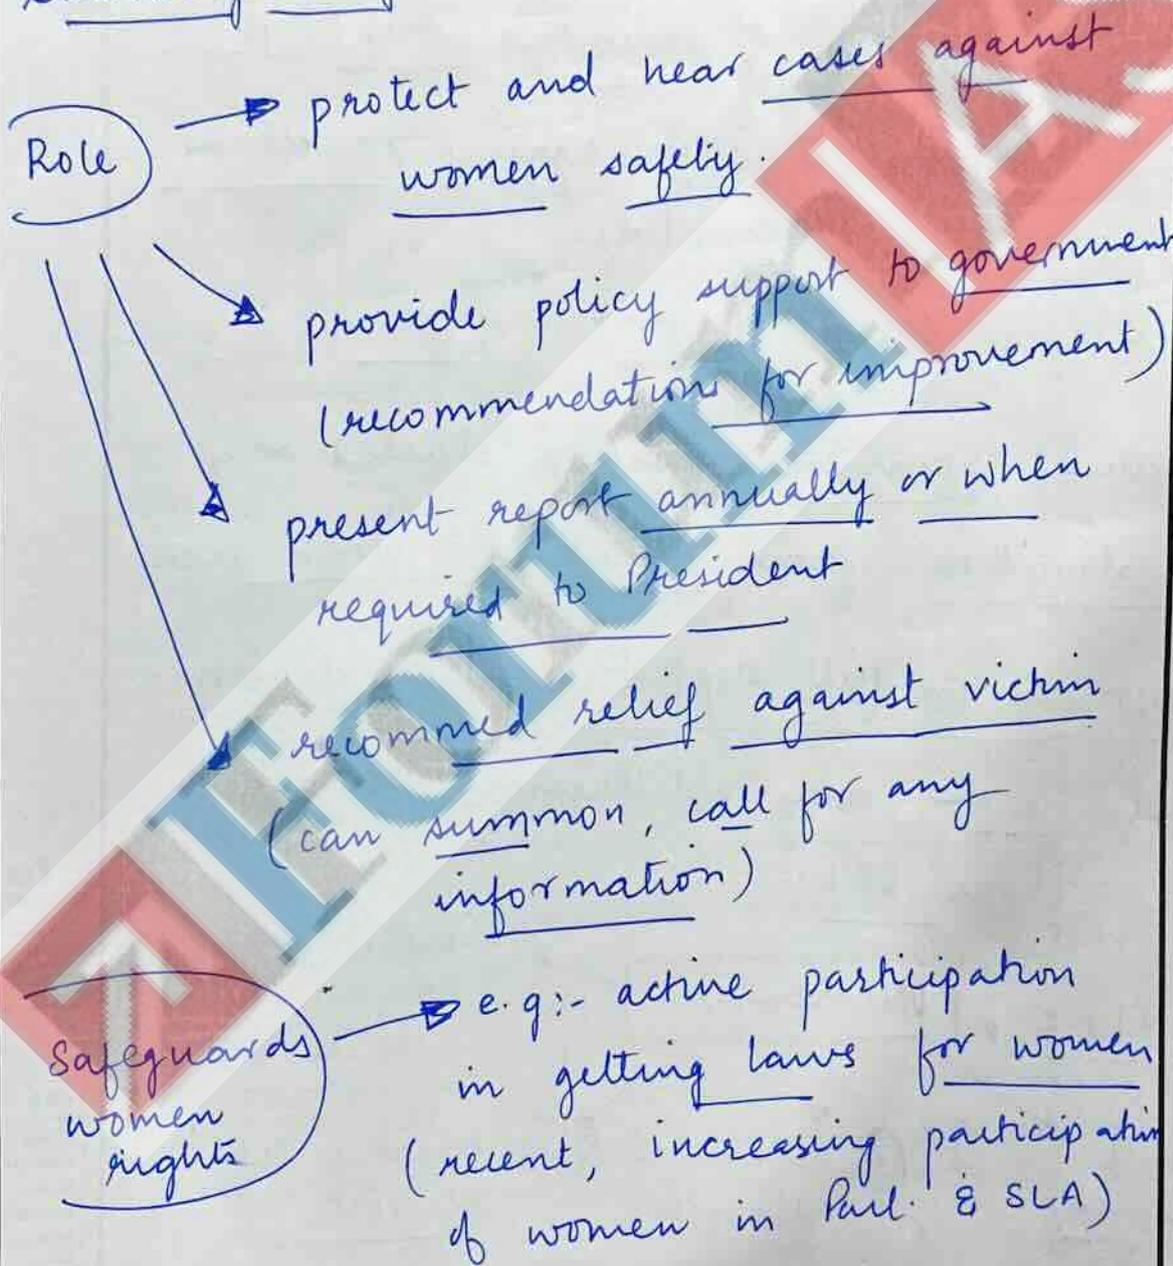 Role
protect and hear cases against
women safety.
provide policy support to government
(recommendations for improvement)
present report annually or when
required to President
recommed relief against victim
(can summon, call for any
information)
Safeguards
women
rights
e.g:- active participation
in getting laws for women
(recent, increasing participation
of women in Parl. & SLA)
Forum IAS